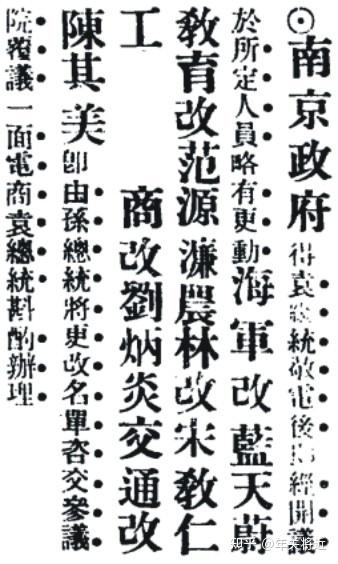 ⊙南京政府得袁總統敬電後經開議
於所定人員略有更動海軍改藍天蔚
敎育改范源濂農林改宋敎仁
工　商改劉炳炎交通改
陳其美卽由孫總統將更改名單咨交參議
院覆議一面電商袁總統斟酌辦理
知乎 @年关将近